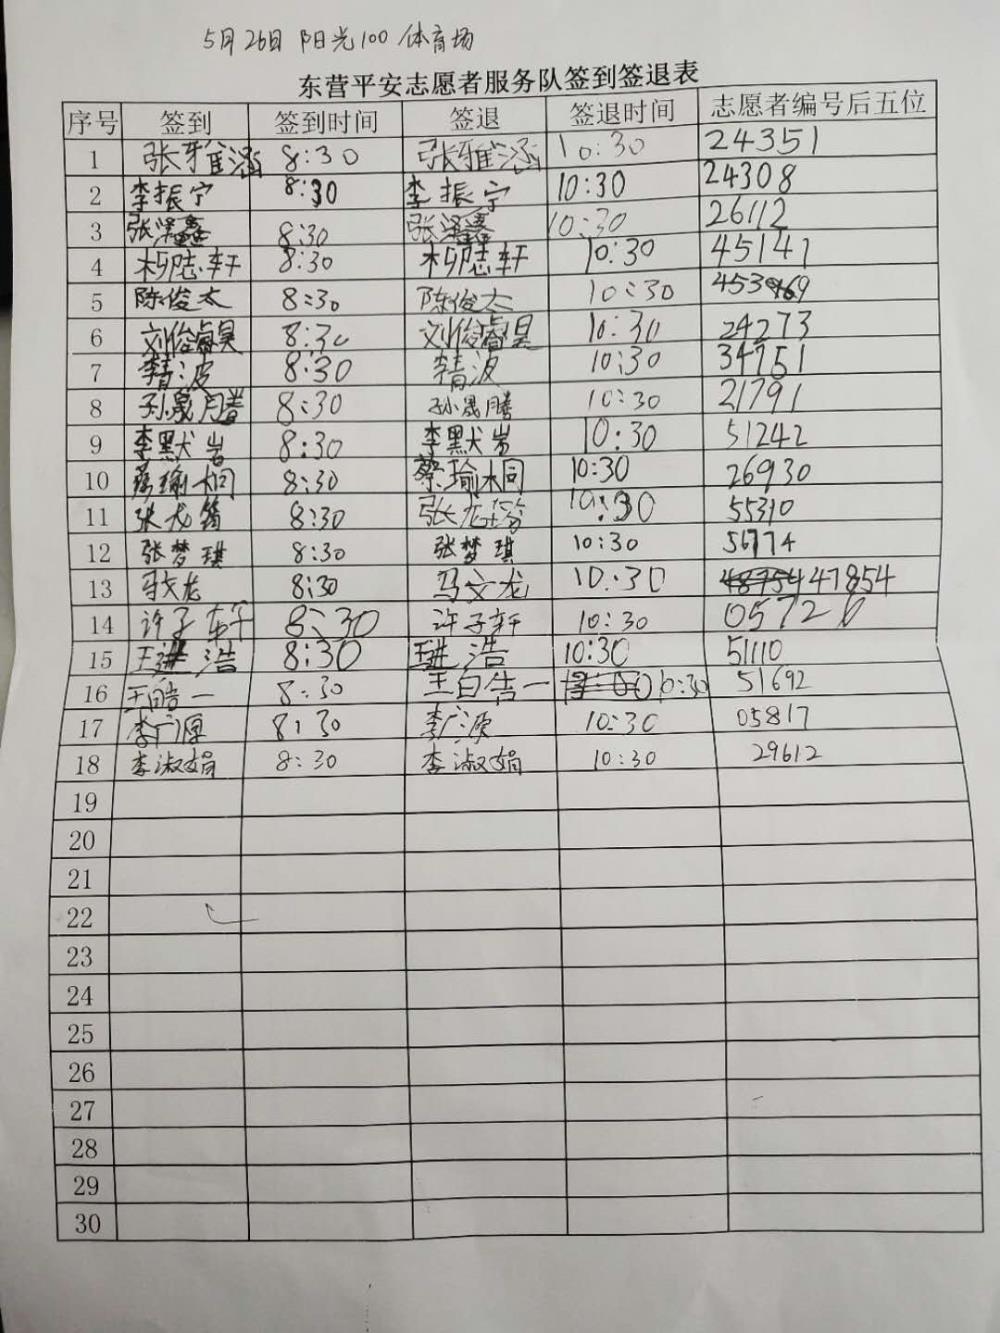 5月26日 阳光100 体育场
东营平安志愿者服务队签到签退表
序号 签到 签到时间 签退 签退时间 志愿者编号后五位
1 张雅涵 8:30 张雅涵 10:30 24351
2 李振宁 8:30 李振宁 10:30 24308
3 张泽鑫 8:30 张泽鑫 10:30 26112
4 8:30 10:30 45141
5 陈俊太 8:30 陈俊太 10:30
6 刘俊睿昊 8:30 刘俊睿昊 10:30 24273
7 李清波 8:30 李清波 10:30 34751
8 孙晟腾 8:30 孙晟腾 10:30 21791
9 李默岩 8:30 李默岩 10:30 51242
10 蔡瑜桐 8:30 蔡瑜桐 10:30 26930
11 8:30 10:30 55310
12 张梦琪 8:30 张梦琪 10:30 56774
13 马文龙 8:30 马文龙 10:30 47854
14 许子轩 8:30 许子轩 10:30 05720
15 王进浩 8:30 王进浩 10:30 51110
16 王皓一 8:30 王皓一 10:30 51692
17 李广源 8:30 李广源 10:30 05817
18 李淑娟 8:30 李淑娟 10:30 29612
19
20
21
22
23
24
25
26
27
28
29
30